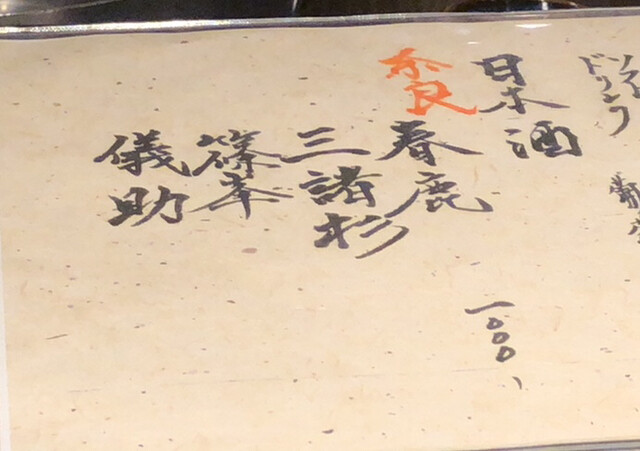 ソフト
ドリンク
日本酒
奈良
春鹿 一〇〇〇、
三諸杉
篠峯
儀助